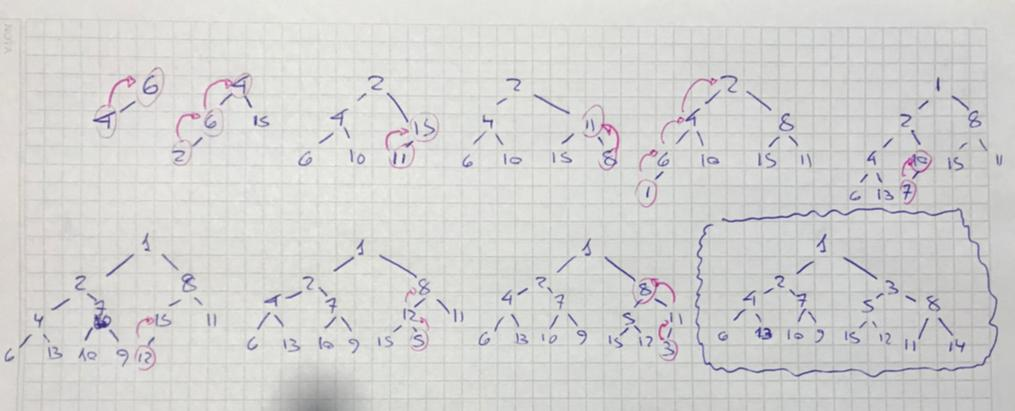 NOTA
6
4
4
6 15
2
2
4 15
6 10 11
2
4 11
6 10 15 8
2
4 8
6 10 15 11
1
1
2 8
4 10 15 11
6 13 7
1
2 8
4 7 15 11
6 13 10 9 12
1
2 8
4 7 12 11
6 13 10 9 15 5
1
2 8
4 7 5 11
6 13 10 9 15 12 3
1
2 3
4 7 5 8
6 13 10 9 15 12 11 14